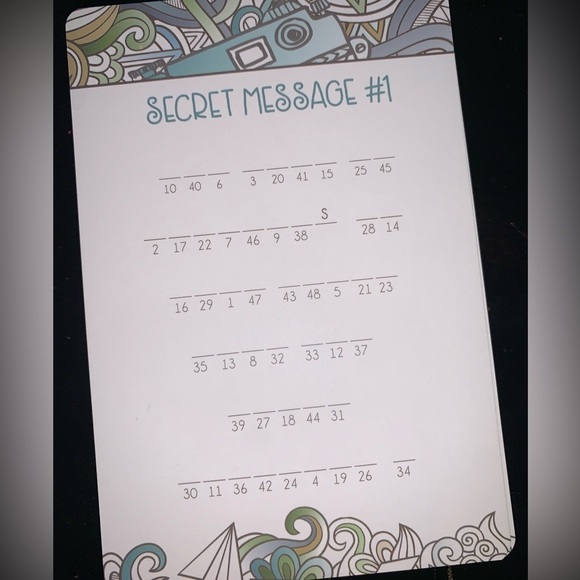 SECRET MESSAGE #1
10 40 6 3 20 41 15 25 45
S
2 17 22 7 46 9 38 28 14
16 29 1 47 43 48 5 21 23
35 13 8 32 33 12 37
39 27 18 44 31
30 11 36 42 24 4 19 26 34